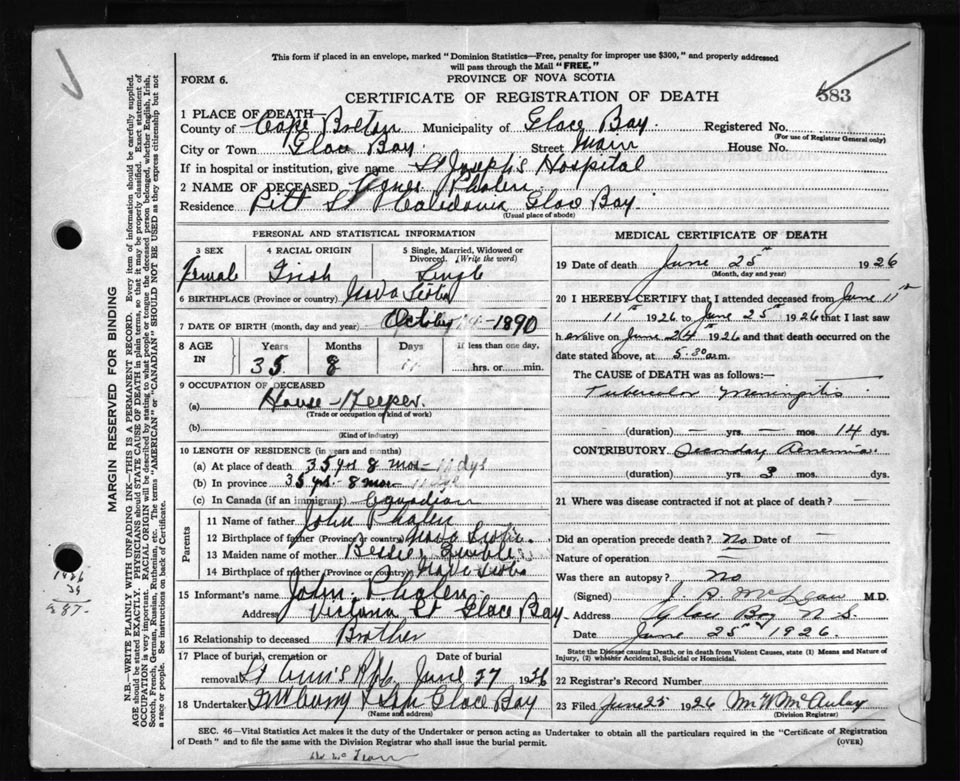 This form if placed in an envelope, marked "Dominion Statistics—Free, penalty for improper use $300," and properly addressed
will pass through the Mail "FREE."
FORM 6.
PROVINCE OF NOVA SCOTIA
583
CERTIFICATE OF REGISTRATION OF DEATH
1 PLACE OF DEATH—
County of Cape Breton Municipality of Glace Bay. Registered No.
(For use of Registrar General only)
City or Town Glace Bay. Street Main House No.
If in hospital or institution, give name St Joseph's Hospital
2 NAME OF DECEASED Agnes Phalen
Residence Pitt St Caledonia Glace Bay.
(Usual place of abode)
PERSONAL AND STATISTICAL INFORMATION
3 SEX 4 RACIAL ORIGIN 5 Single, Married, Widowed or Divorced. (Write the word)
Female Irish Single
6 BIRTHPLACE (Province or country) Nova Scotia
7 DATE OF BIRTH (month, day and year) October 1890
8 AGE IN Years Months Days If less than one day,
35 8 11 hrs. or min.
9 OCCUPATION OF DECEASED
(a) House-Keeper.
(Trade or occupation or kind of work)
(b)
(Kind of industry)
10 LENGTH OF RESIDENCE (in years and months)
(a) At place of death 35 yrs 8 mos - 11 dys
(b) In province 35 yrs - 8 mos 11 dys
(c) In Canada (if an immigrant) Canadian
Parents
11 Name of father John Phalen
12 Birthplace of father (Province or country) Nova Scotia
13 Maiden name of mother Bessie
14 Birthplace of mother (Province or country) Nova Scotia
15 Informant's name John Phalen
Address Victoria St Glace Bay
16 Relationship to deceased Brother
17 Place of burial, cremation or removal Date of burial
St Ann's June 27 1926
18 Undertaker Glace Bay
(Name and address)
MEDICAL CERTIFICATE OF DEATH
19 Date of death June 25th 1926
(Month, day and year)
20 I HEREBY CERTIFY that I attended deceased from June 11th
11th 1926 to June 25th 1926 that I last saw
her alive on June 24th 1926 and that death occurred on the
date stated above, at 5.30 a.m.
The CAUSE OF DEATH was as follows:
Tubercular Meningitis
(duration) — yrs. — mos. 14 dys.
CONTRIBUTORY Secondary Anemia
(duration) yrs. 3 mos. dys.
21 Where was disease contracted if not at place of death?
Did an operation precede death? No Date of —
Nature of operation —
Was there an autopsy? No
(Signed) McLean M.D.
Address Glace Bay N.S.
Date June 25th 1926.
State the Disease causing Death, or in death from Violent Causes, state (1) Means and Nature of
Injury, (2) whether Accidental, Suicidal or Homicidal.
22 Registrar's Record Number
23 Filed June 25 1926 McAulay
(Division Registrar)
SEC. 46—Vital Statistics Act makes it the duty of the Undertaker or person acting as Undertaker to obtain all the particulars required in the "Certificate of Registration
of Death" and to file the same with the Division Registrar who shall issue the burial permit.
(OVER)
MARGIN RESERVED FOR BINDING
N.B.—WRITE PLAINLY WITH UNFADING INK—THIS IS A PERMANENT RECORD. Every item of information should be carefully supplied.
AGE should be stated EXACTLY. PHYSICIANS should state CAUSE OF DEATH in plain terms, so that it may be properly classified. Exact statement of
OCCUPATION is very important. RACIAL ORIGIN will be described by stating to what people or tongue the deceased person belonged, whether English, Irish,
Scotch, French, German, Russian, Ruthenian, etc. The terms "AMERICAN" or "CANADIAN" SHOULD NOT BE USED as they express citizenship but not
a race or people. See instructions on back of Certificate.